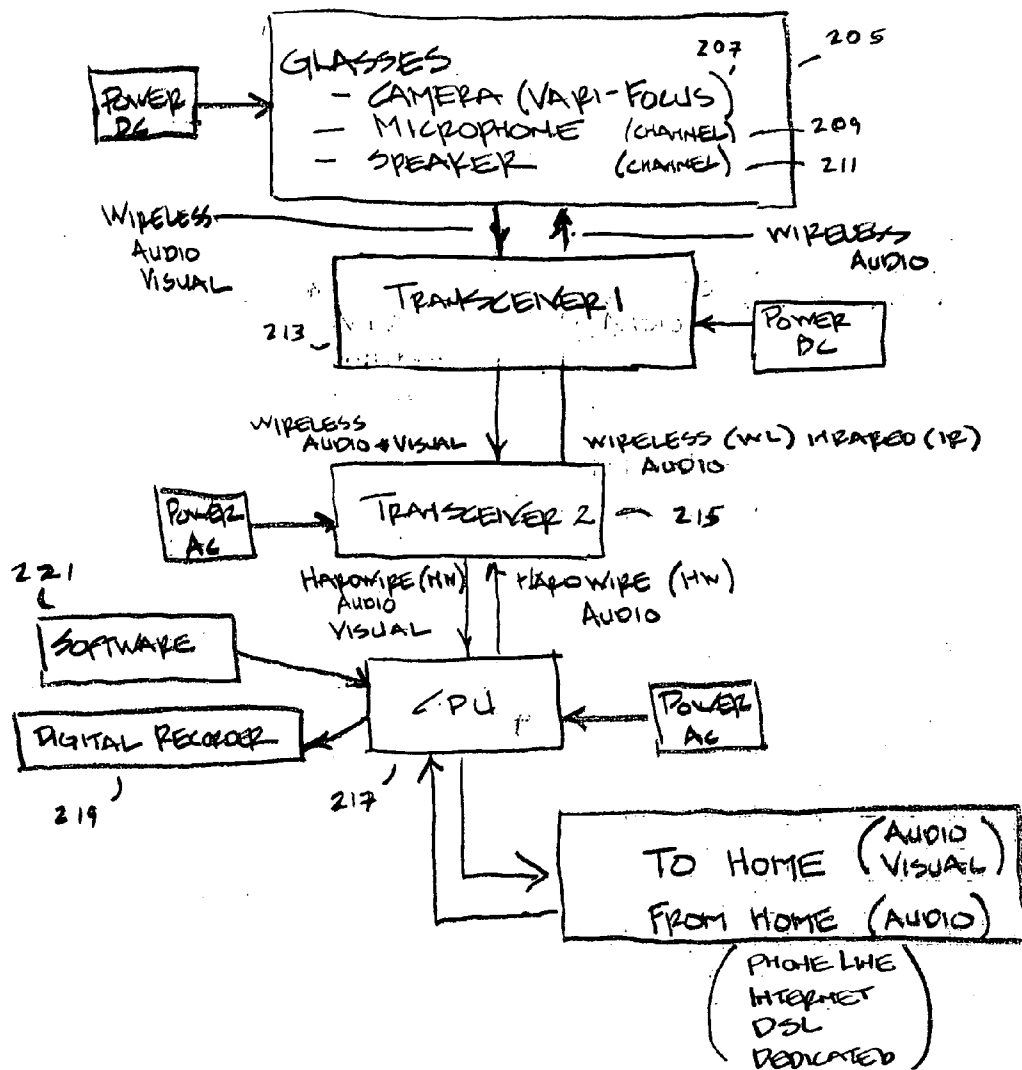 205
207
GLASSES
- CAMERA (VARI-FOCUS)
- MICROPHONE (CHANNEL) 209
- SPEAKER (CHANNEL) 211
POWER
DC
WIRELESS
AUDIO
VISUAL
WIRELESS
AUDIO
TRANSCEIVER 1
213
POWER
DC
WIRELESS
AUDIO & VISUAL
WIRELESS (WL) INRARED (IR)
AUDIO
POWER
AC
TRANSCEIVER 2
215
221
HARDWIRE (HW)
AUDIO
VISUAL
HARDWIRE (HW)
AUDIO
SOFTWARE
CPU
POWER
AC
DIGITAL RECORDER
219
217
TO HOME (AUDIO
VISUAL)
FROM HOME (AUDIO)
(PHONE LINE
INTERNET
DSL
DEDICATED)